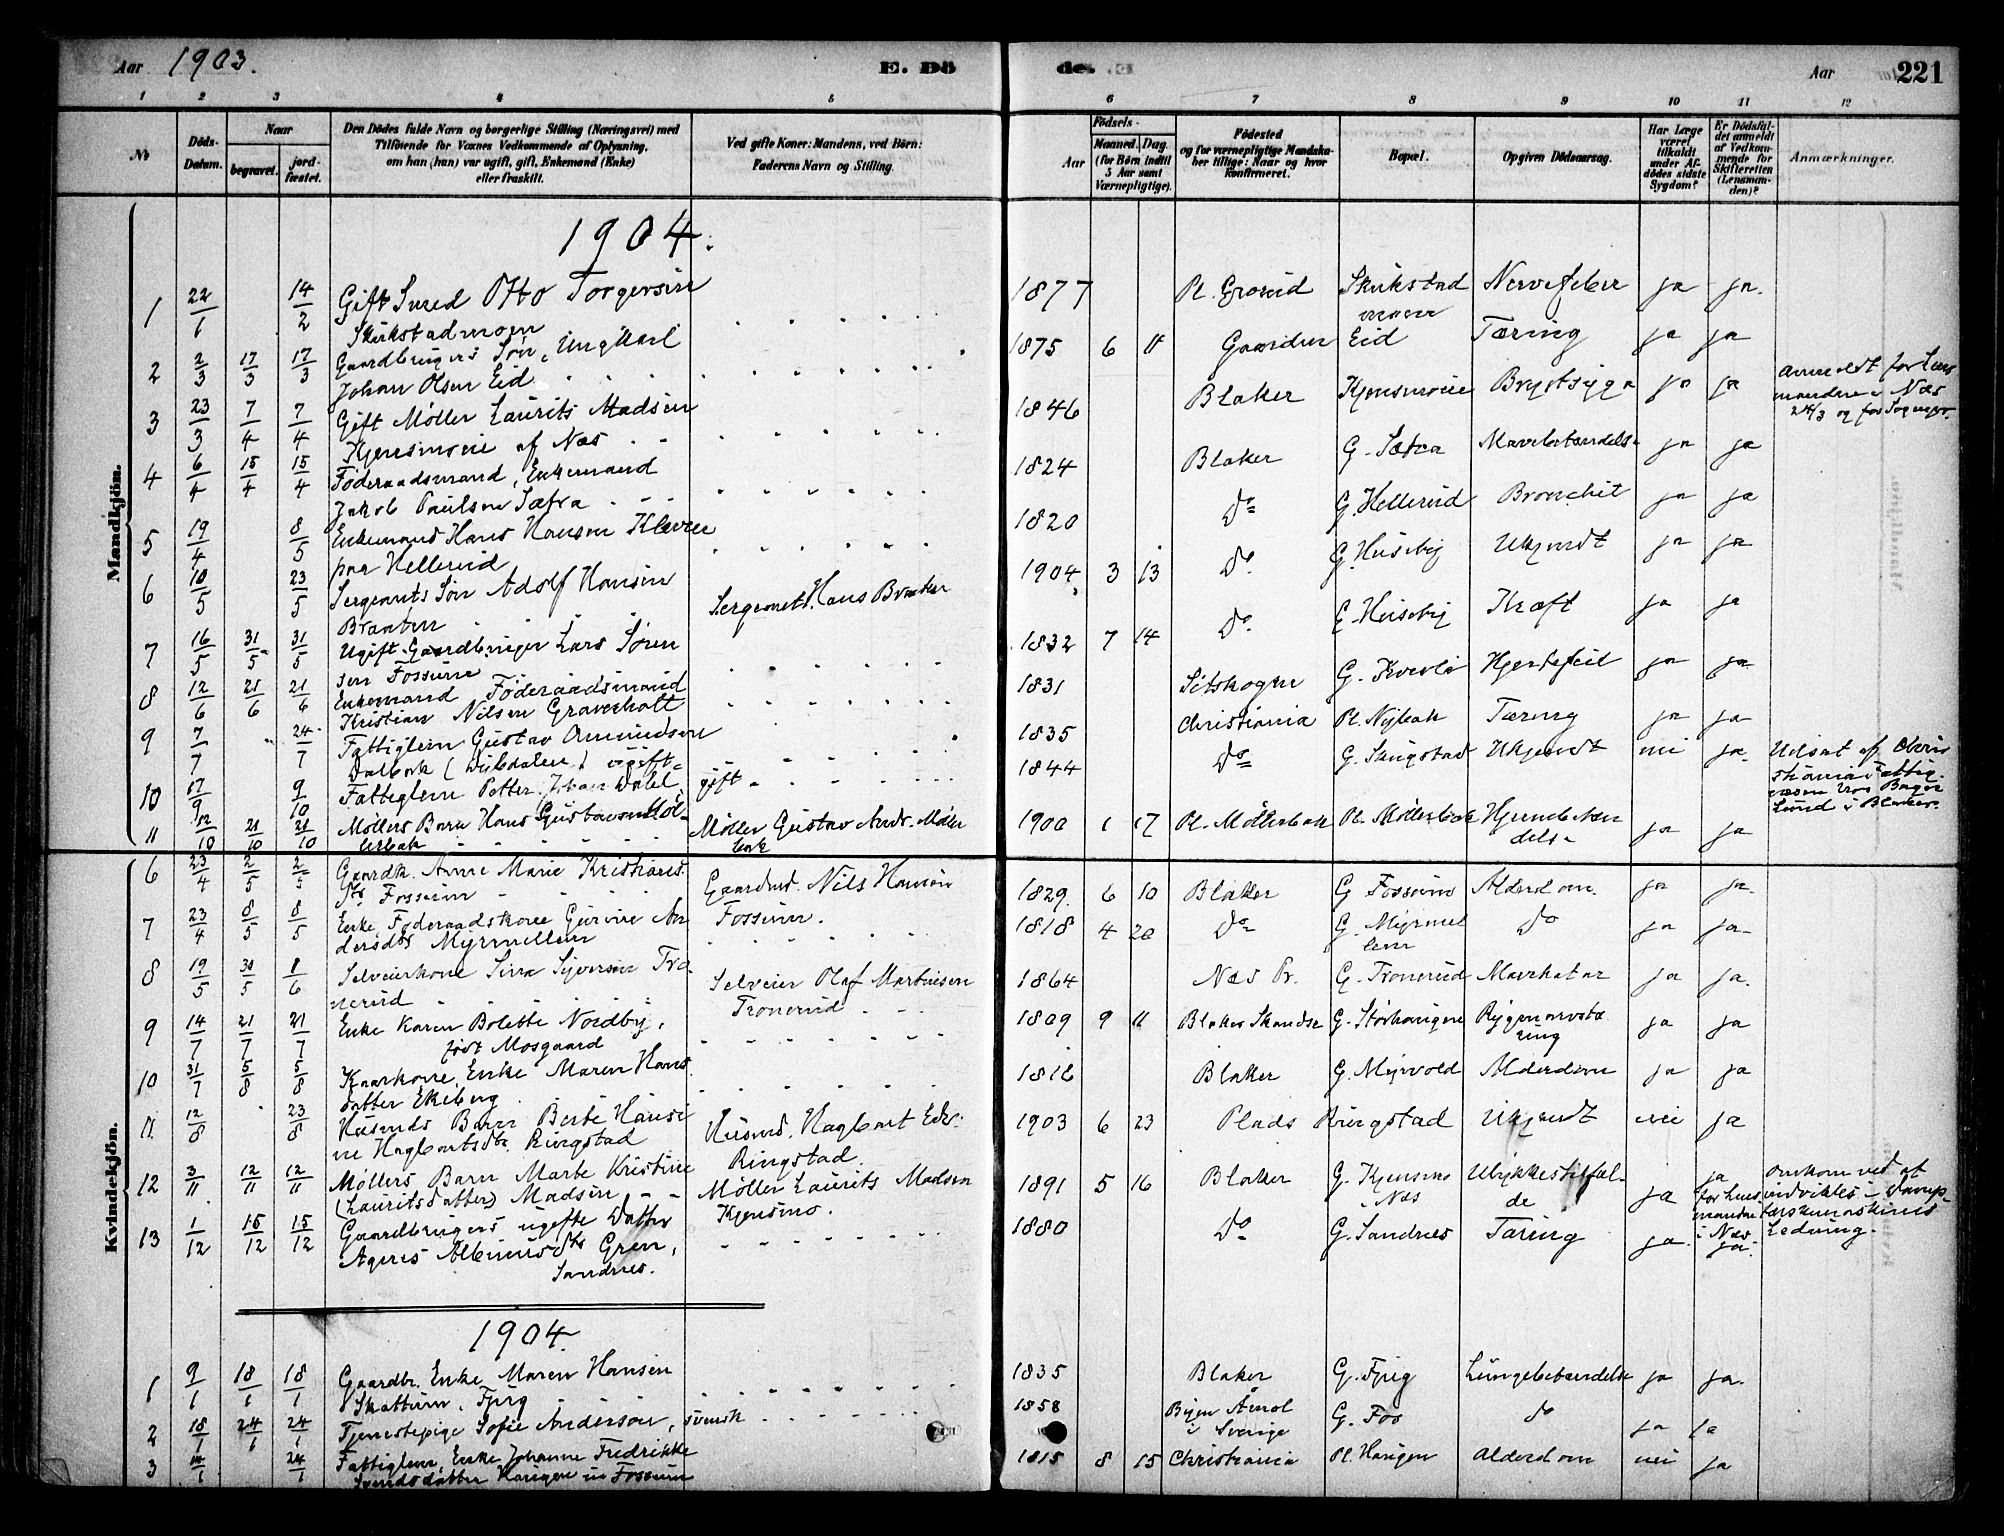 Aar 1903. E. Dö
de. Aar 221
1 2 3 4 5 6 7 8 9 10 11 12
No
Döds-
Datum.
Naar
begravet.
jord-
fæstet.
Den Dödes fulde Navn og borgerlige Stilling (Næringsvei) med
Tilföiende for Voxnes Vedkommende af Oplysning,
om han (hun) var ugift, gift, Enkemand (Enke)
eller fraskilt.
Ved gifte Koner: Mandens, ved Börn:
Faderens Navn og Stilling.
Födsels-
Aar
Maaned.
Dag.
(for Börn indtil
5 Aar samt
Værnepligtige).
Födested
og for værnepligtige Mandska-
ber tillige: Naar og hvor
konfirmeret.
Bopæl.
Opgiven Dödsaarsag.
Har Læge
været
tilkaldt
under Af-
dödes sidste
Sygdom?
Er Dödsfal-
det anmeldt
af Vedkom-
mende for
Skifteretten
(Lensman-
den)?
Anmærkninger.
Mandkjön.
1904.
1 22/1 14/2 Gift Otto Torgersen 1877 Pl. Skukstad Nervefeber ja ja.
moen
2 2/3 17/3 17/3 Gaardbrugers Søn, Ungkarl 1875 6 11 Gaarden Eid Tæring ja ja
Johan Olsen Eid
3 23/3 7/4 7/4 Gift Møller Laurits Madsen 1846 Blaker Kjensmoie Brystsyge ja ja Anmeldt for Lens
Kjensmoie af Næs manden i Næs
24/3 og for
4 6/4 15/4 15/4 Føderaadsmand, Enkemand 1824 Blaker G. Sætra Mavebetændelse ja ja
Jakob Paulsen Sætra
5 19/4 8/5 Enkemand Hans Hansen Kleven 1820 Do G. Hellerud Bronchit ja ja
paa Hellerud
6 10/5 23/5 Sergeants Søn Adolf Hansen Sergeant Hans Braaten 1904 3 13 Do. G. Huseby Ukjendt ja ja
Braaten
7 16/5 31/5 31/5 Ugift Gaardbruger Lars Søren 1832 7 14 Do. G. Huseby Kræft ja ja
sen Fossum
8 12/6 21/6 21/6 Enkemand Føderaadsmand 1831 Setskogen G. Kverli Hjertefeil ja ja
Kristian Nilsen Graverholt
9 7/7 24/7 Fattiglem Gustav Amundsen 1835 Christiania Pl. Nybak Tæring ja ja
Dalbak (Dulsdalen) ugift
10 9/10 Fattiglem Petter Johan Dahl, gift 1844 Do G. Skugstad Ukjendt nei ja Udsat af Chris
tiania Fattig-
væsen hos
Lund i Blaker.
11 12/10 21/10 21/10 Møllers Barn Hans Gustavsen Møl- Møller Gustav Andr. Møller 1900 1 17 Pl. Møllerbak Pl. Møllerbak Hjernebetæn ja ja
lerbak bak delse
Kvindekjön.
6 23/4 2/5 2/5 Gaardk. Anne Marie Kristians- Gaardmd. Nils Hansen 1829. 6 10 Blaker G Fossum Alderdom. ja ja
dtr Fossum Fossum.
7 23/4 8/5 8/5 Enke, Føderaadskone Gurine An 1818 4 20 Do G. Myrmel Do ja ja
dersdtr Myrmellem lem
8 19/5 30/5 1/6 Selveierkone Sira Syversen Tro- Selveier Olaf Martinsen 1864 Næs Pr. G. Tronerud Mavekatar ja ja.
nerud Tronerud
9 14/7 21/7 21/7 Enke Karen Bolette Nordby, 1809 9 11 Blaker Skandse G. Storhaugen Rygmarvstæ ja ja
født Mosgaard ring
10 31/7 5/8 5/8 Kaarkone, Enke Maren Hans 1816 Blaker G. Myrvold Alderdom ja ja
datter Ekeberg
11. 12/8 23/8 Husmds Barn Berte Hansi Husmd. Hagbart Edv. 1903 6 23 Plads Ringstad Ukjendt nei ja
ne Hagbartsdtr Ringstad Ringstad
12 3/11 12/11 12/11 Møllers Barn Marte Kristine Møller Laurits Madsen 1891 5 16 Blaker G. Kjensmo Ulykkestilfæl- ja ja Omkom ved at
(Lauritsdatter) Madsen Kjensmo. Næs de for Lens indvikles i Damp
manden tærskemaskinens
i Næs Ledning.
13 1/12 15/12 15/12 Gaardbrugers ugifte Datter 1880 Do G. Sandnes Tæring ja ja.
Agnes Albinusdtr Gren,
Sandnes.
1904
1 9/1 18/1 18/1 Gaardbr. Enke Maren Hansen 1835 Blaker G. Fjug Lungebetændelse ja ja.
Skattum, Fjug
2 18/1 24/1 24/1 Tjenestepige Sofie Anderson, svensk 1858 Byen Åmol G. Fos do ja ja
i Sverige
3 14/1 24/1 Fattiglem, Enke Johanne Fredrikke 1815 8 15 Christiania Pl. Haugen Alderdom nei ja
Svendsdatter Haugen Fossum